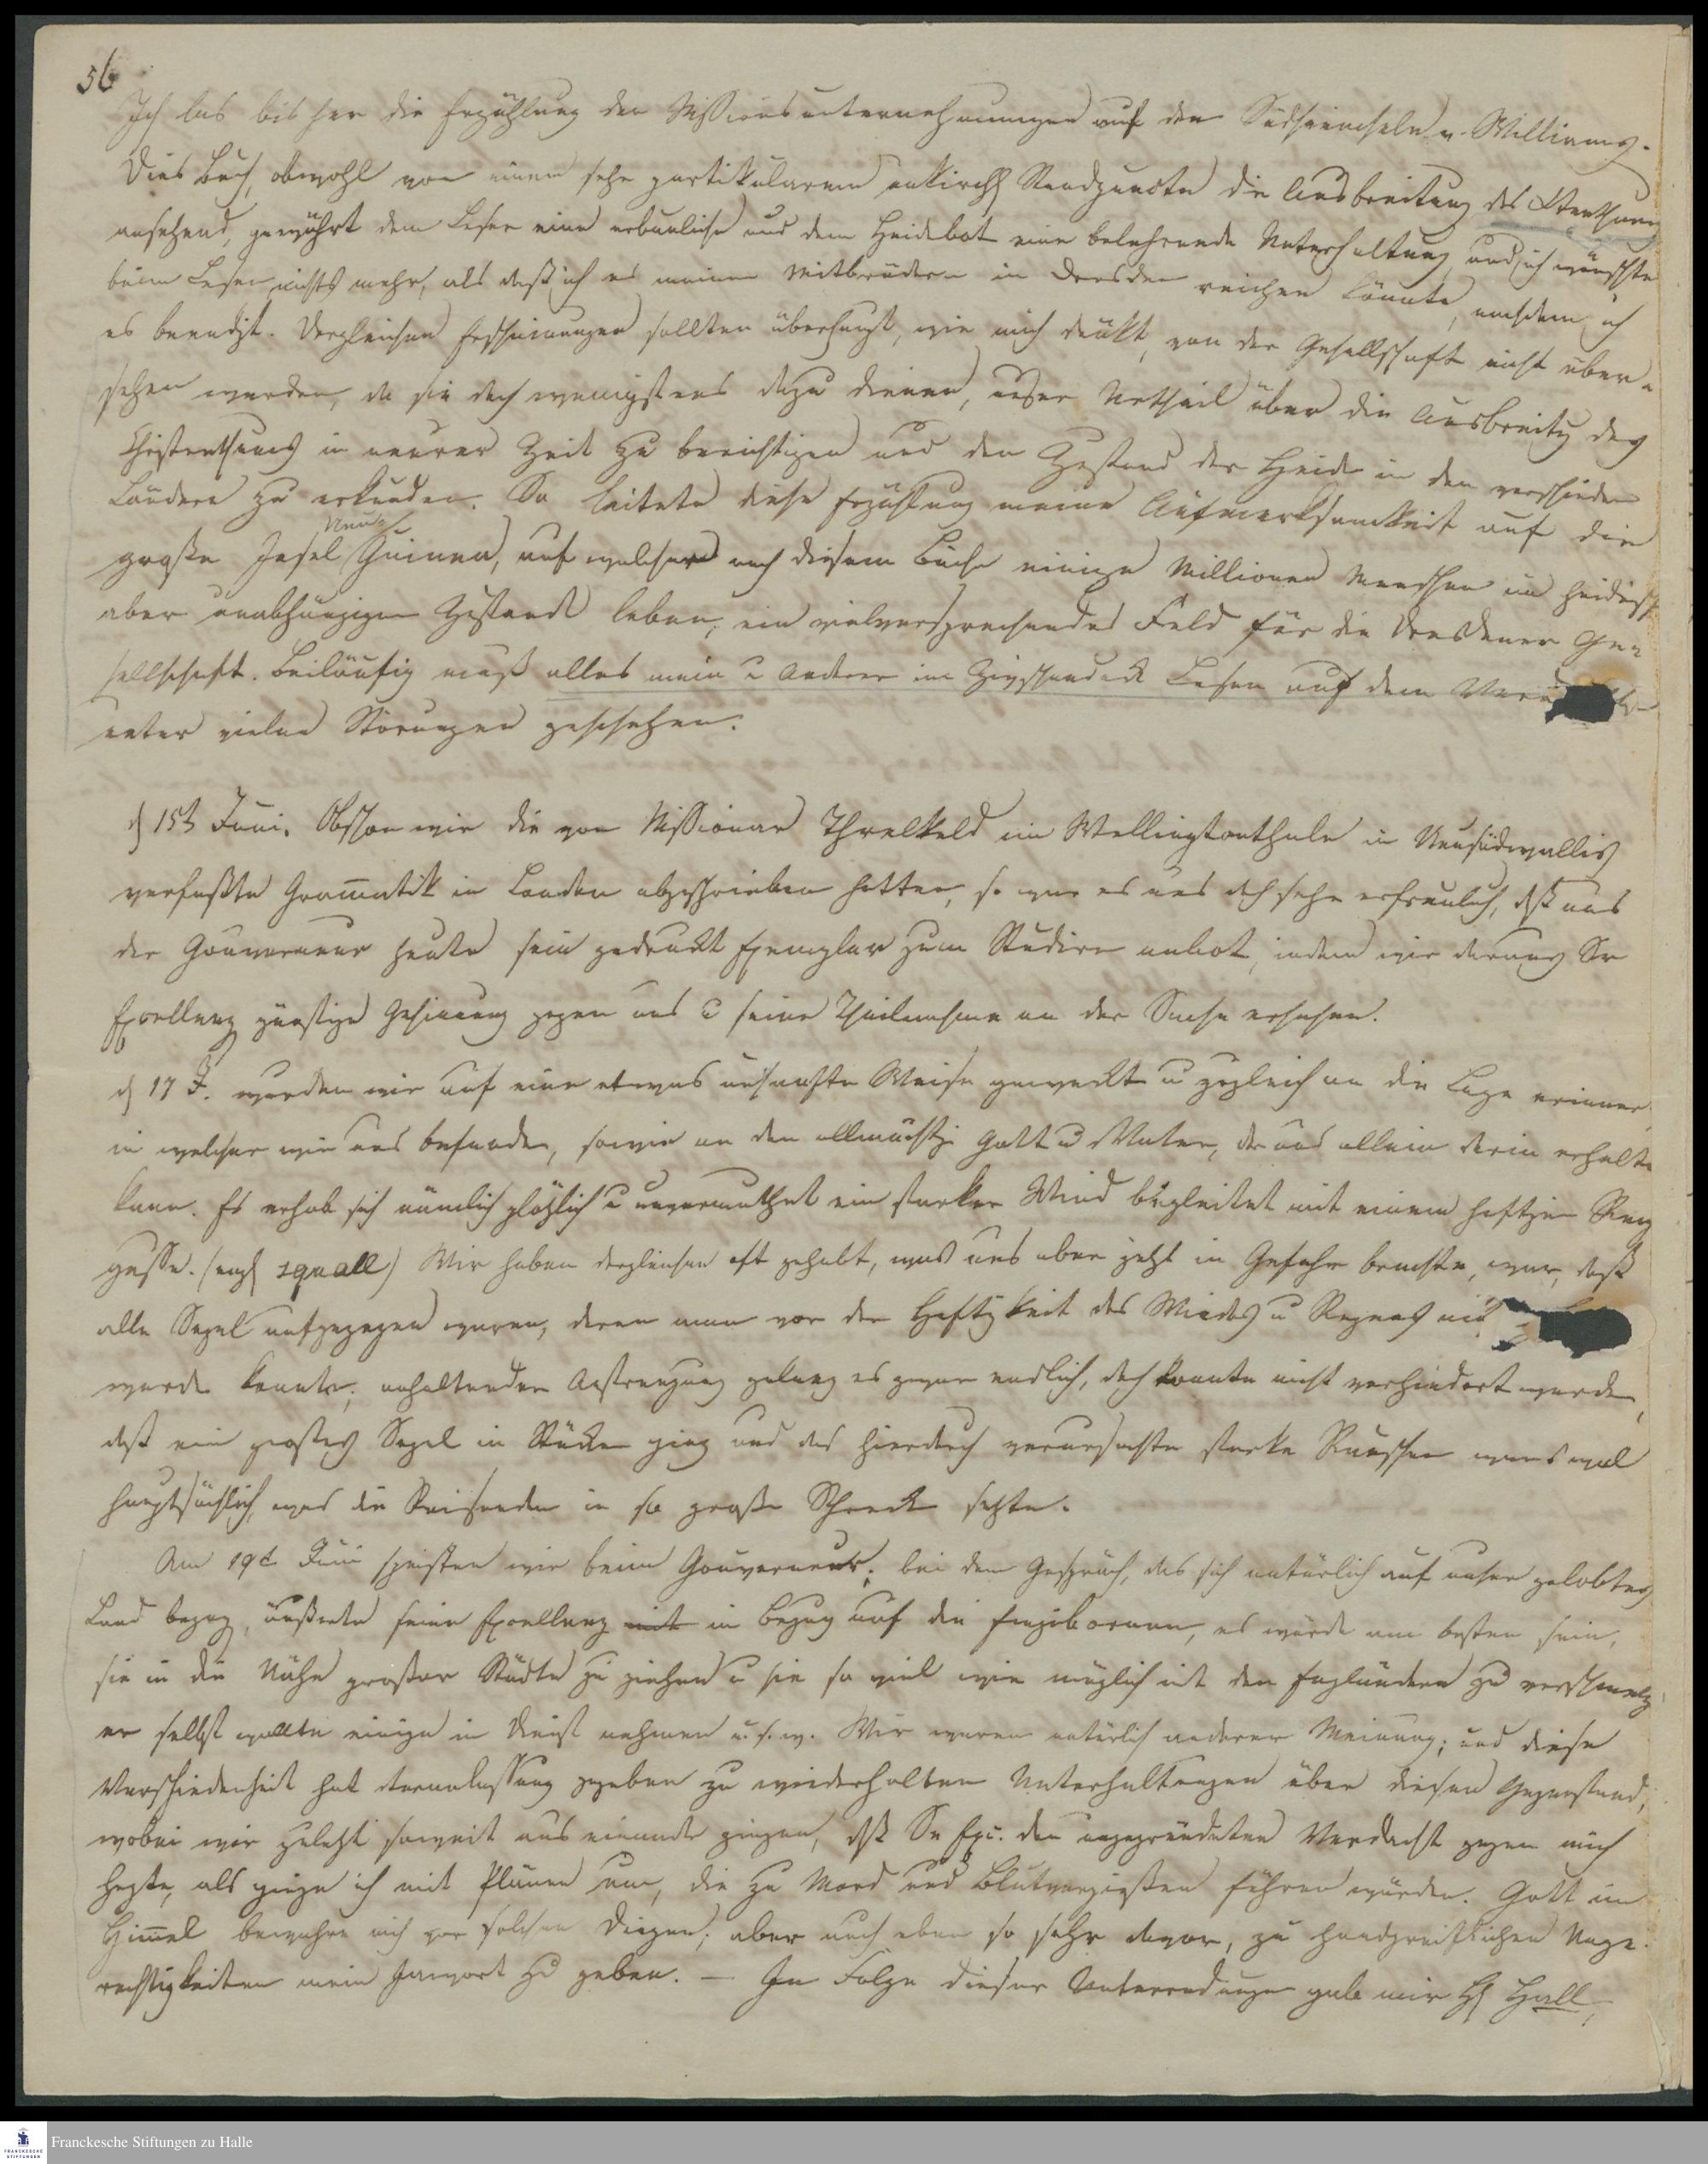 56
Ich las bisher die Erzählung der Missionsunternehmungen auf den Südseeinseln v. Williams.
Dies Buch, obwohl von einem sehr partikularem unkirchl Standpuncte die Ausbreitung des Xstenthums
ansehend, gewährt dem Leser eine erbauliche und dem Heidebot eine belehrende Unterhaltung, und ich wünschte
beim Lesen nichts mehr, als daß ich es meinen Mitbrüdern in Dresden reichen könnte, nachdem ich
es beendigt. Dergleichen Erscheinungen sollten überhaupt, wie mich deucht, von der Gesellschaft nicht über-
sehen werden, da sie doch wenigstens dazu dienen, unser Urtheil über die Ausbreitg des
Christenthums in neurer Zeit zu berichtigen und den Zustand der Heide in den verschieden
Ländern zu erkunden. So leitete diese Erzählung meine Aufmerksamkeit auf die
große Insel Neu-Guinea, auf welcher nach diesem Buche einige Millionen Menschen im heidnisch
aber unabhängigen Zustande leben, ein vielversprechendes Feld für die Dresdener Ge-
sellschaft. Beiläufig muß alles mein u Anderer im Lesen auf dem
unter vielen Störungen geschehen.
d 15t Juni. Obschon wir die von Missionar Threlkeld im Wellingtonthale in Neusüdwallis
verfaßte Gramatik in London abgeschrieben hatten, so war es uns doch sehr erfreulich, daß uns
der Gouverneur heute sein gedruckt Exemplar zum Studiren anbot, indem wir daraus Sr
Excellenz günstige Gesinnung gegen uns u seine Theilnahme an der Sache ersehen.
d 17 J. wurden wir auf eine etwas unsanfte Weise geweckt u zugleich an die Lage erinner
in welcher wir uns befanden, sowie an den allmächtig Gott u Vater, der uns allein darin erhalte
kann. Es erhob sich nämlich plözlich u unvermuthet ein starker Wind begleitet mit einem heftigen Reg
gusse. (engl squall) Wir haben dergleichen oft gehabt, was uns aber jetzt in Gefahr brachte, war, daß
alle Segel aufgezogen waren, deren man vor der Heftigkeit des Windes u Regens nicht
werde konnte; anhaltender Anstrengung gelang es zwar endlich, doch konnte nicht verhindert werden,
daß ein großes Segel in Stücken ging und das hierdurch verursachte starke Rauschen war es wol
hauptsächlich, was die Reisenden in so große Schreck sezte.
Am 19t Juni speisten wir beim Gouverneur; bei dem Gespräch, das sich natürlich auf unser gelobtes
Land bezog, äußerte seine Excellenz mit in Bezug auf die Eingebornen, es würde am besten sein,
sie in die Nähe großer Städte zu ziehen u sie so viel wie möglich mit den Engländern zu verschmelz
er selbst wollte einige in Dienst nehmen u. s. w. Wir waren natürlich anderer Meinung; und diese
Verschiedenheit hat Veranlassung gegeben zu wiederholten Unterhaltungen über diesen Gegenstand,
wobei wir zuletzt soweit aus einander gingen, daß Sr Exc. den ungegründeten Verdacht gegen mich
hegte, als ginge ich mit Plänen um, die zu Mord und Blutvergießen führen würden. Gott im
Himmel bewahre mich vor solchen Dingen; aber auch eben so sehr davor, zu handgreiflichen Unge-
rechtigkeiten mein Jawort zu geben. — In Folge dieser Unterredungen gab mir H Hall,
Franckesche Stiftungen zu Halle